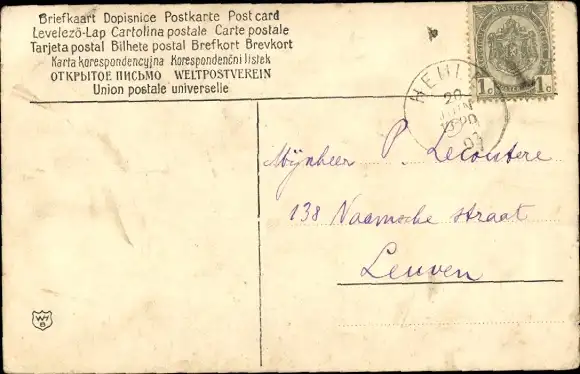 Briefkaart Dopisnice Postkarte Post card
Levelező-Lap Cartolina postale Carte postale
Tarjeta postal Bilhete postal Brefkort Brevkort
Karta korespondencyjna Korespondenčni listek
ОТКРЫТОЕ ПИСЬМО WELTPOSTVEREIN
Union postale universelle
1c 1c
HEUL
20
JUIN
Mynheer P. Lecoutere
138 Naamsche straat
Leuven